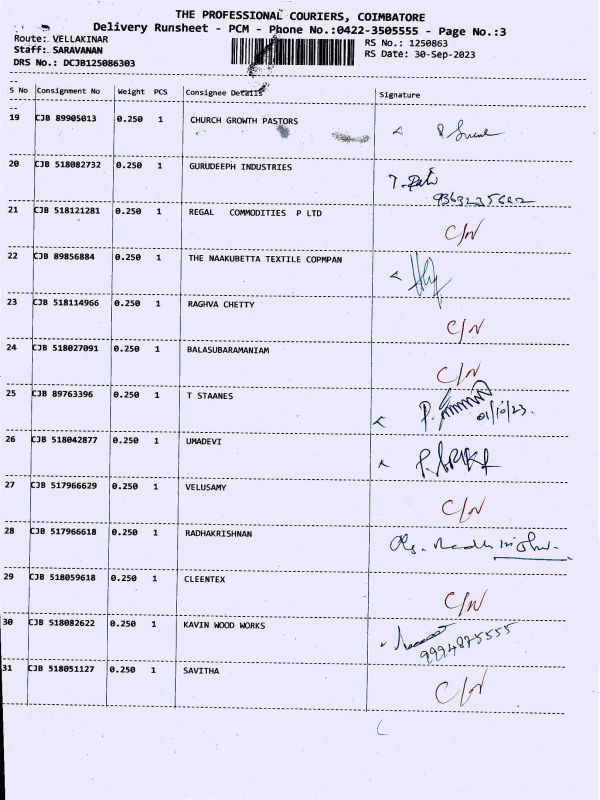 THE PROFESSIONAL COURIERS, COIMBATORE
Delivery Runsheet - PCM - Phone No.:0422-3505555 - Page No.:3
Route: VELLAKINAR RS No.: 1250863
Staff: SARAVANAN RS Date: 30-Sep-2023
DRS No.: DCJB125086303
S No Consignment No Weight PCS Consignee Details Signature
19 CJB 89905013 0.250 1 CHURCH GROWTH PASTORS
20 CJB 518082732 0.250 1 GURUDEEPH INDUSTRIES
21 CJB 518121281 0.250 1 REGAL COMMODITIES P LTD C/N
22 CJB 89856884 0.250 1 THE NAAKUBETTA TEXTILE COPMPAN
23 CJB 518114966 0.250 1 RAGHVA CHETTY C/N
24 CJB 518027091 0.250 1 BALASUBARAMANIAM C/N
25 CJB 89763396 0.250 1 T STAANES 01/10/23.
26 CJB 518042877 0.250 1 UMADEVI
27 CJB 517966629 0.250 1 VELUSAMY C/N
28 CJB 517966618 0.250 1 RADHAKRISHNAN
29 CJB 518059618 0.250 1 CLEENTEX C/N
30 CJB 518082622 0.250 1 KAVIN WOOD WORKS 9994875555
31 CJB 518051127 0.250 1 SAVITHA C/N